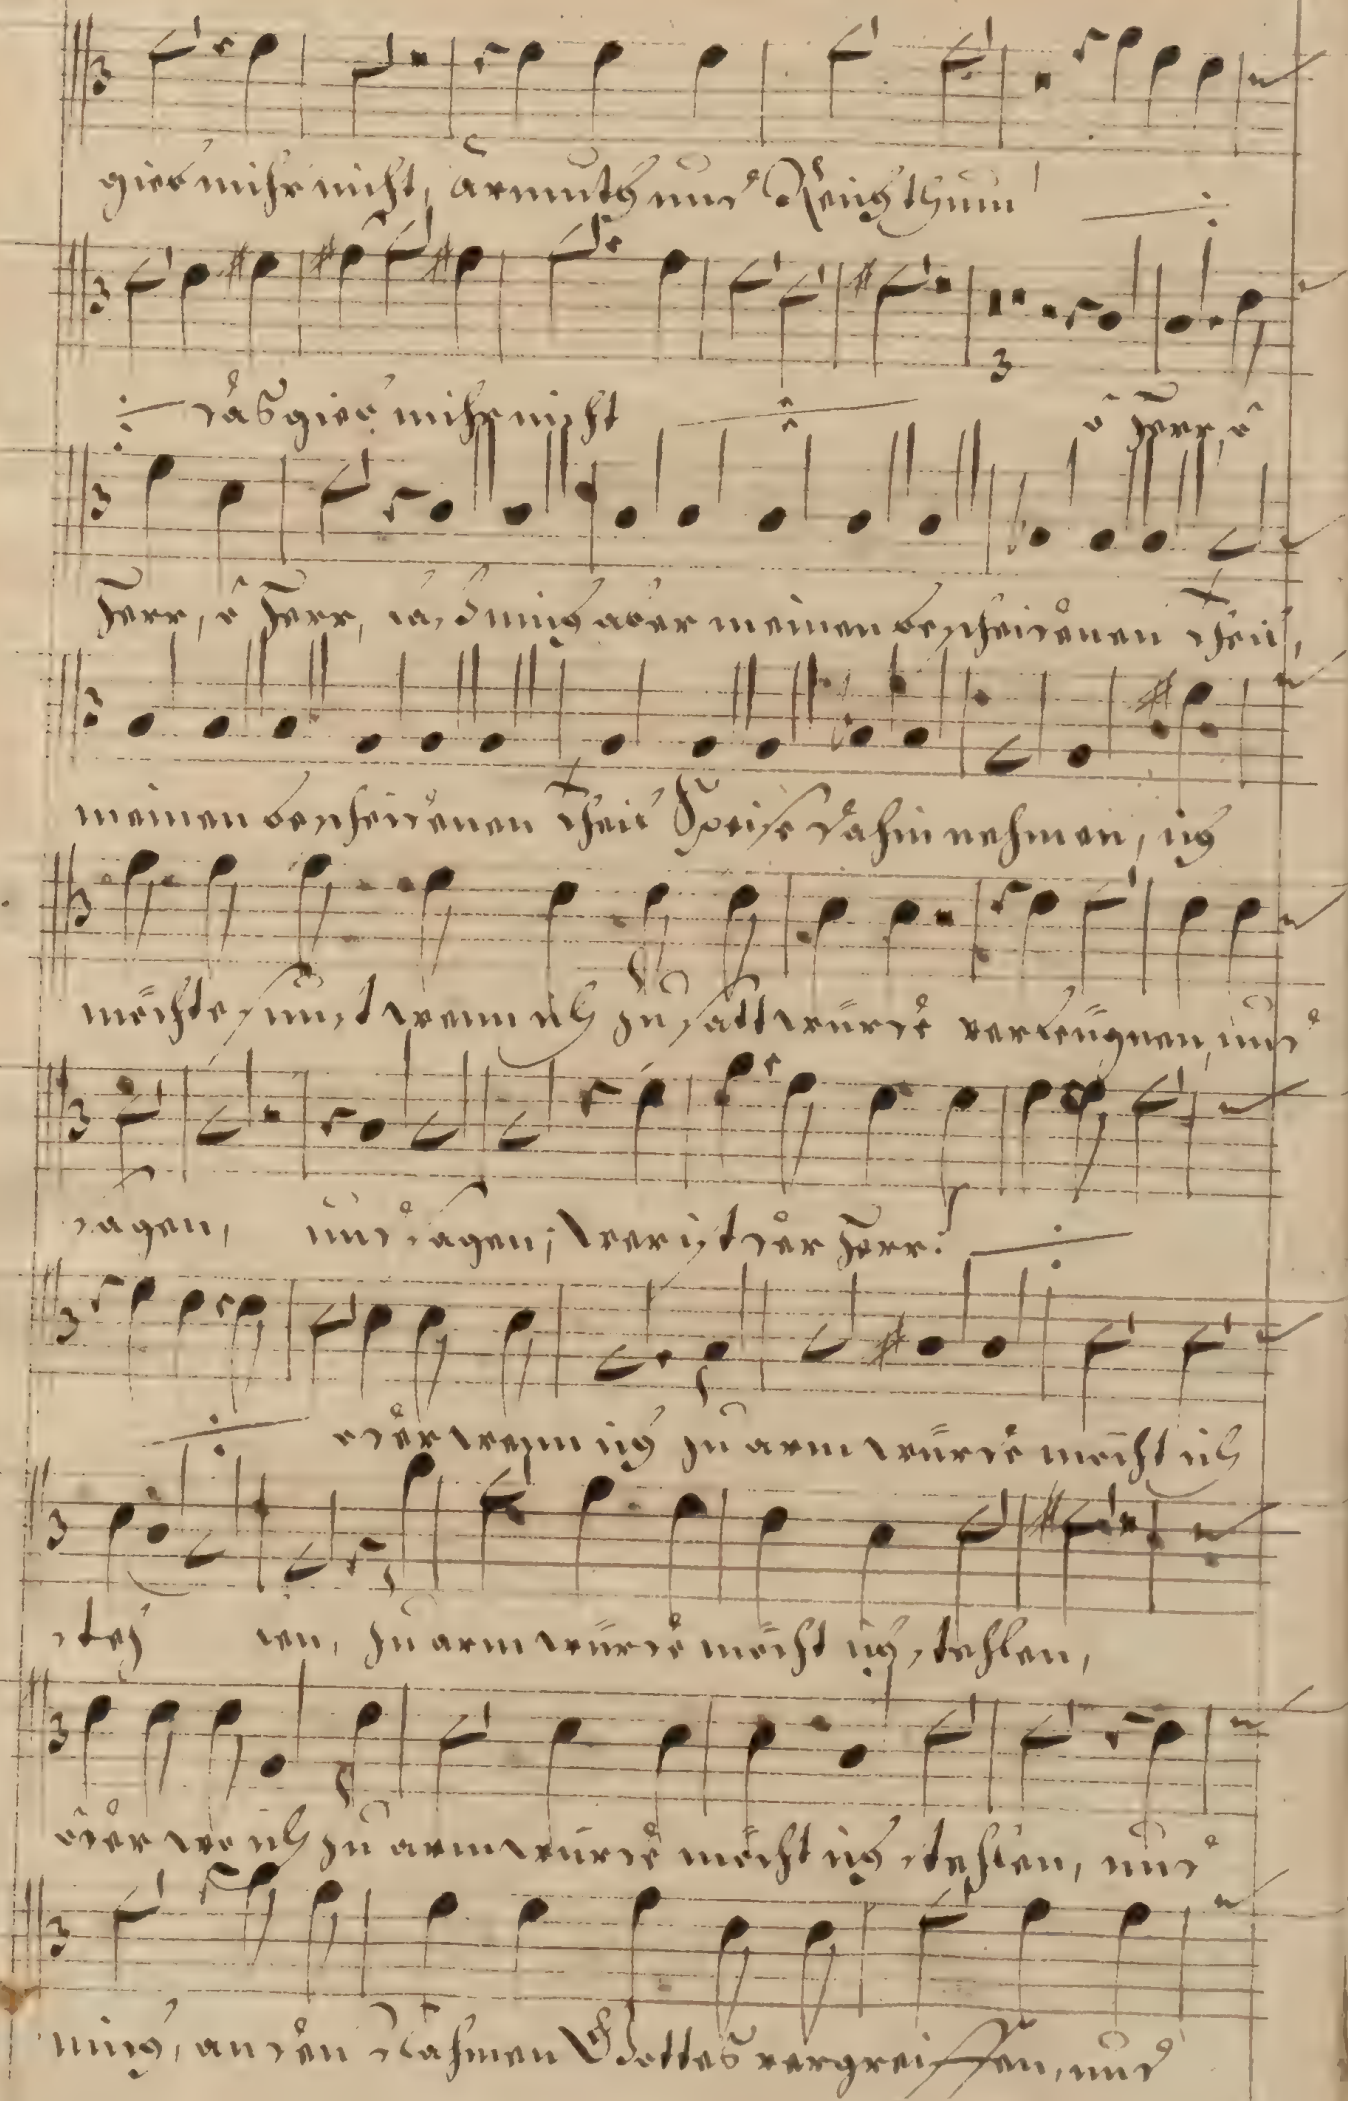 gieb mihr nicht, armuth und Reichthum
das gieb mihr nicht ô Herr, ô
Herr, ô Herr, laß mich aber meinen bescheidenen theil,
meinen bescheidenen theil Speise dahin nehmen, ich
möchte sunst wenn ich zu satt würde verleugnen, und
sagen, und sagen; wer ist der Herr:
oder wenn ich zu arm würde möcht ich
steh len, zu arm würde möcht ich stehlen,
oder wo ich zu arm würde möcht ich stehlen, und
mich, an den Nahmen Gottes vergreiffen, und